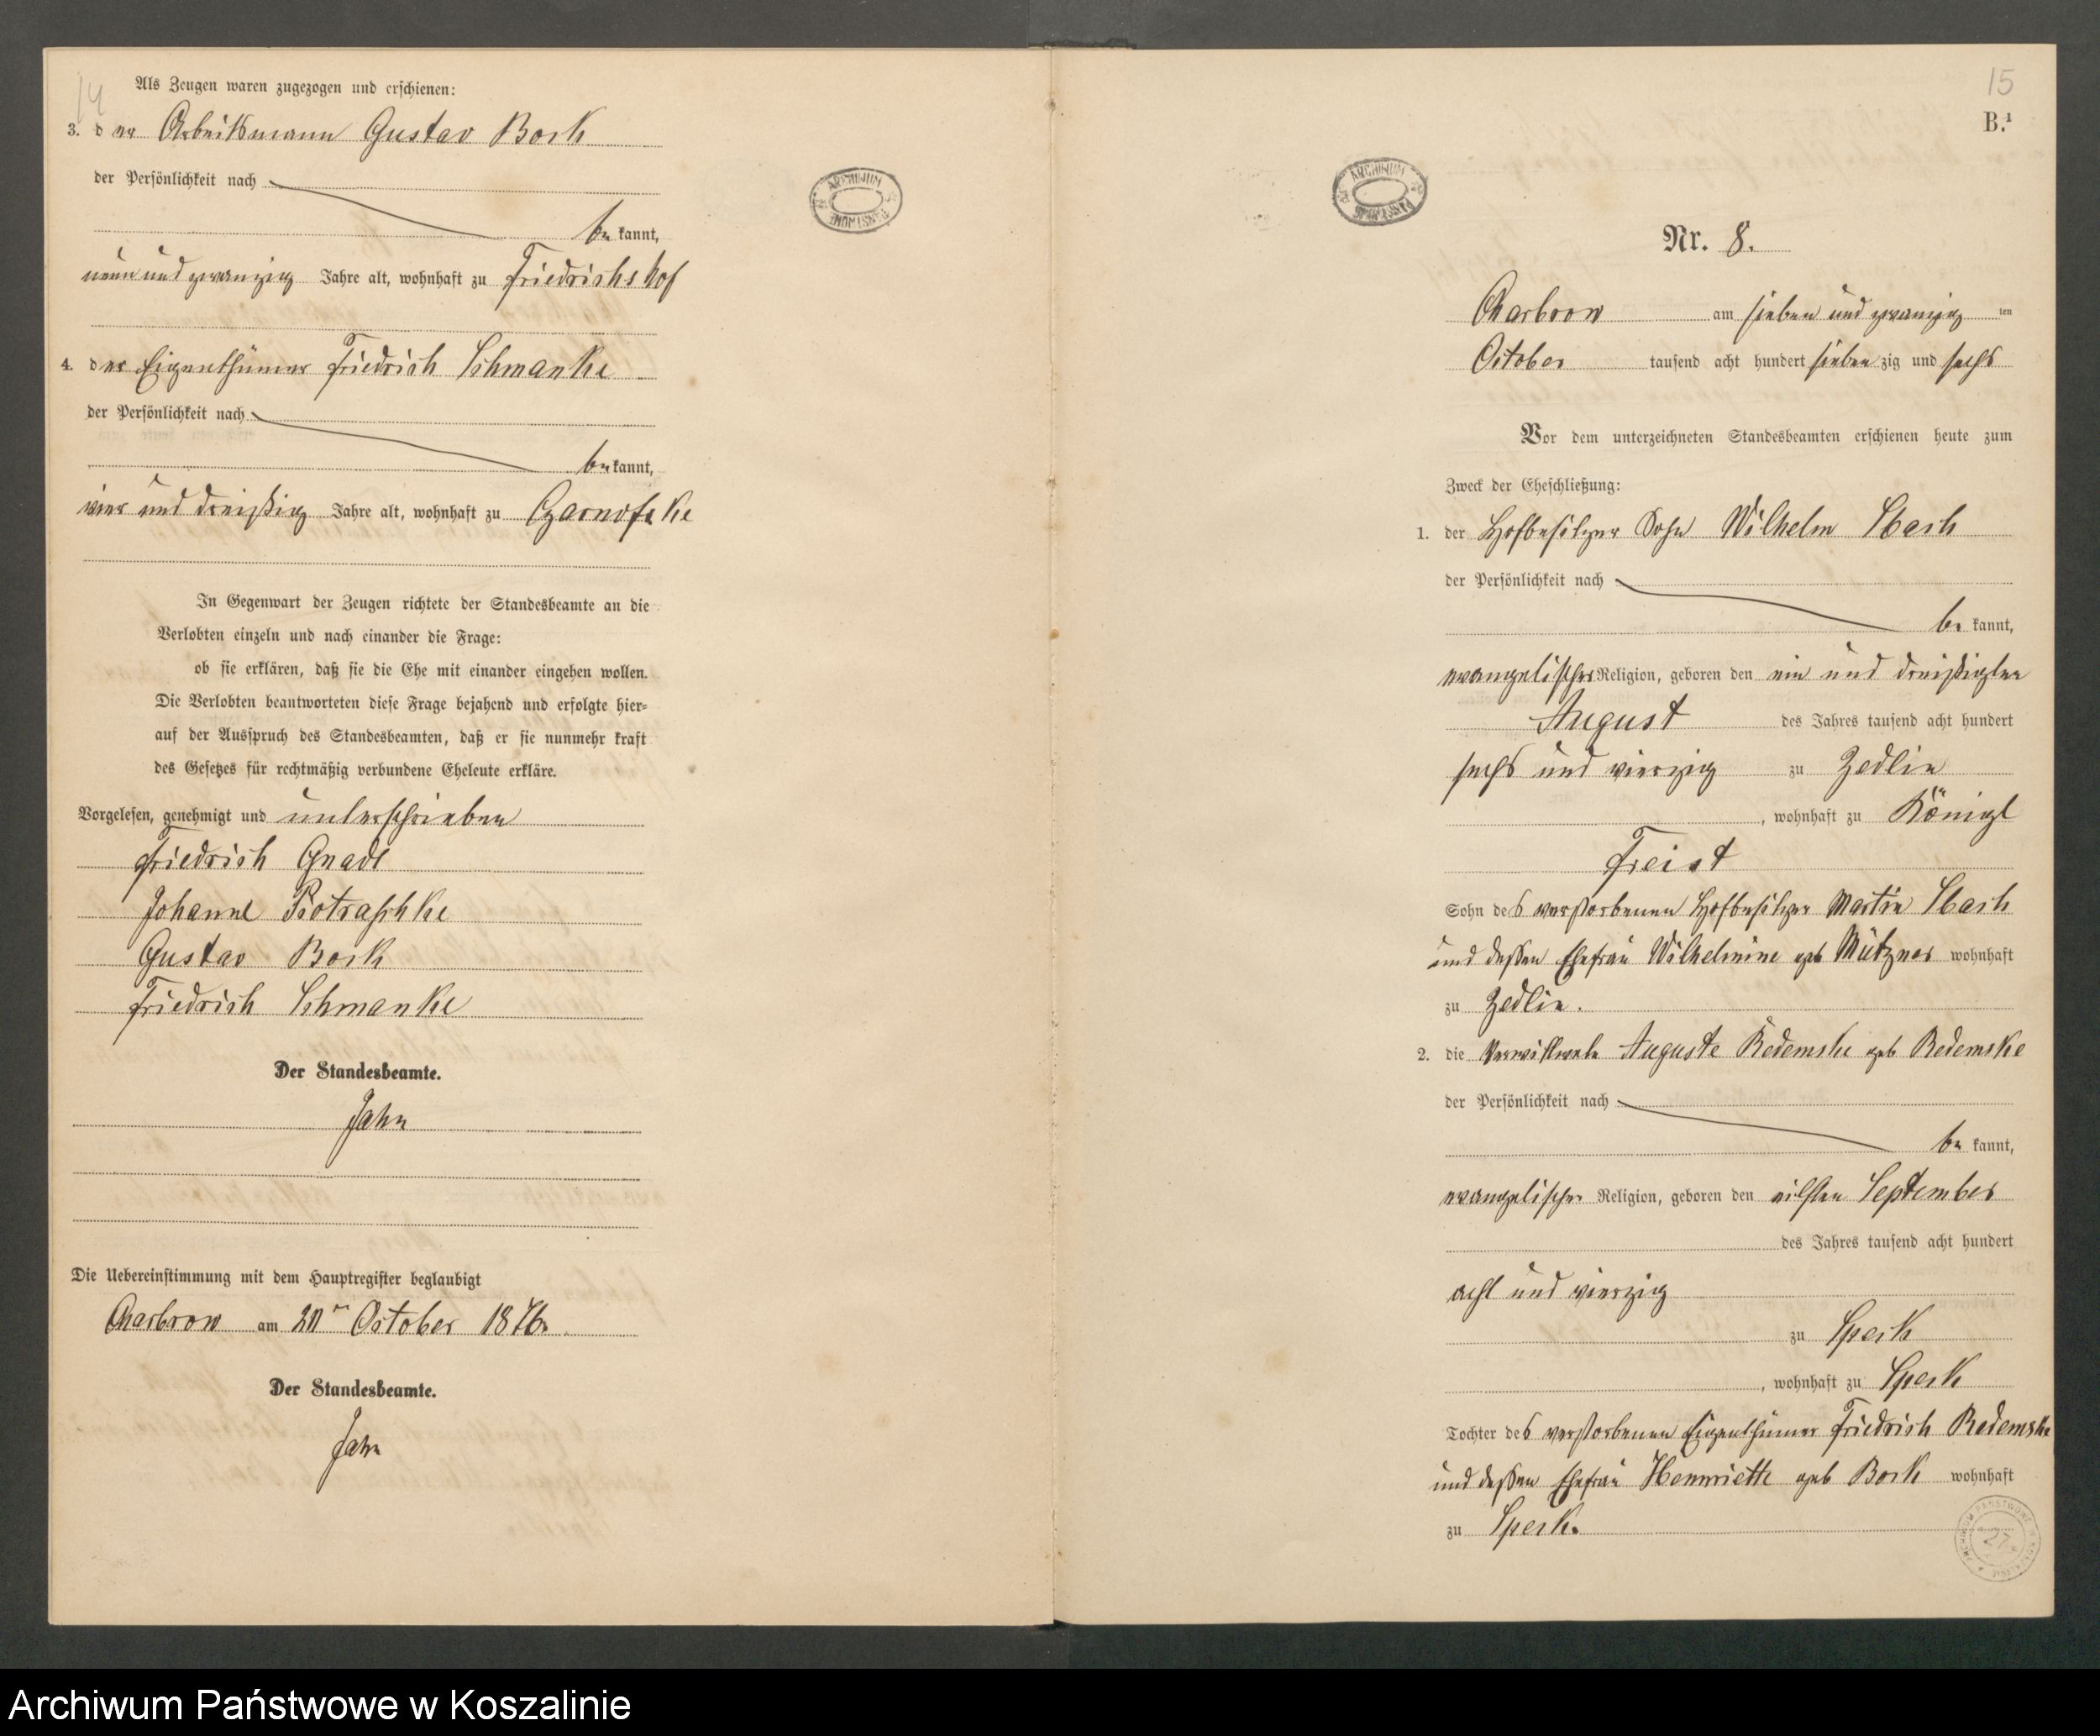 14
Als Zeugen waren zugezogen und erschienen:
3. der Arbeitsmann Gustav Bork
der Persönlichkeit nach
bekannt,
neun und zwanzig Jahre alt, wohnhaft zu Friedrichshof
4. der Eigenthümer Friedrich Schmanke
der Persönlichkeit nach
bekannt,
vier und dreißig Jahre alt, wohnhaft zu Czarnofske
In Gegenwart der Zeugen richtete der Standesbeamte an die
Verlobten einzeln und nach einander die Frage:
ob sie erklären, daß sie die Ehe mit einander eingehen wollen.
Die Verlobten beantworteten diese Frage bejahend und erfolgte hier=
auf der Ausspruch des Standesbeamten, daß er sie nunmehr kraft
des Gesetzes für rechtmäßig verbundene Eheleute erkläre.
Vorgelesen, genehmigt und unterschrieben
Friedrich Gnade
Johanne Piotraschke
Gustav Bork
Friedrich Schmanke
Der Standesbeamte.
Jahn
Die Uebereinstimmung mit dem Hauptregister beglaubigt
Charbrow am October 1876.
Der Standesbeamte.
Jahn
ARCHIWUM PAŃSTWOWE
15
B.¹
ARCHIWUM PAŃSTWOWE
Nr. 8.
Charbrow am sieben und zwanzig ten
October tausend acht hundert siebenzig und sechs
Vor dem unterzeichneten Standesbeamten erschienen heute zum
Zweck der Eheschließung:
1. der Hofbesitzer Sohn Wilhelm
der Persönlichkeit nach
bekannt,
evangelischer Religion, geboren den ein und dreißigten
August des Jahres tausend acht hundert
sechs und vierzig zu Zedlin
, wohnhaft zu Königl
Freist
Sohn des verstorbenen Hofbesitzer Martin
und dessen Ehefrau Wilhelmine geb Mützner wohnhaft
zu Zedlin.
2. die Verwittwete Auguste Redemske geb Redemske
der Persönlichkeit nach
bekannt,
evangelischer Religion, geboren den eilften September
des Jahres tausend acht hundert
acht und vierzig
zu Speck
, wohnhaft zu Speck
Tochter des verstorbenen Eigenthümer Friedrich Redemske
und dessen Ehefrau Hennriette geb Bork wohnhaft
zu Speck.
Archiwum Państwowe w Koszalinie